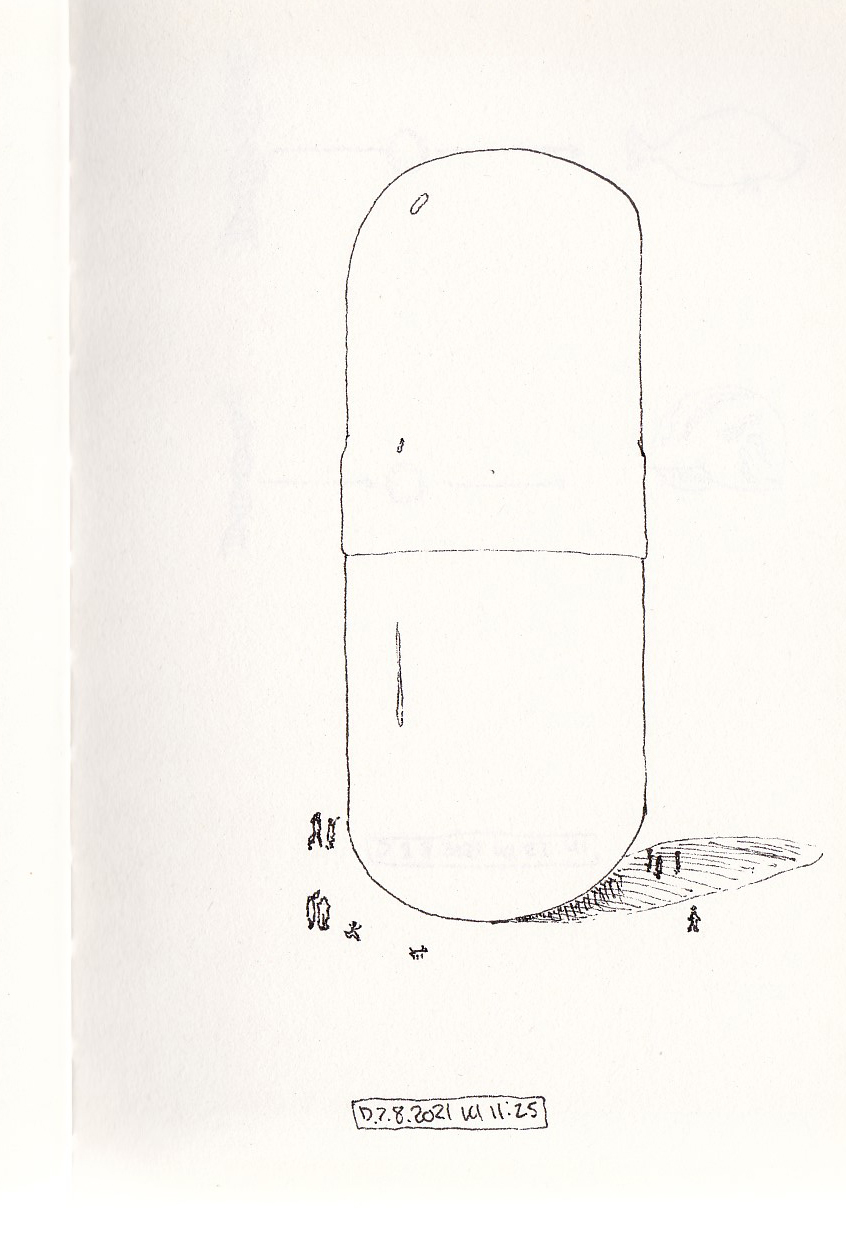 D.7.8.2021 kl 11:25